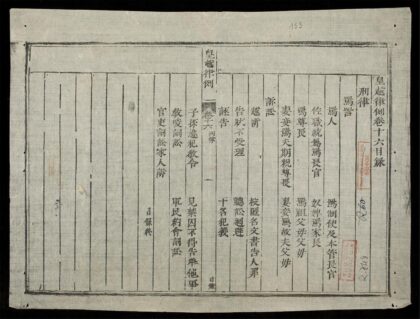 153
皇越律例卷十六目錄
刑律
罵詈
罵人　罵制使及本管長官
佐職統屬罵長官　奴婢罵家長
罵尊長　罵祖父母父母
妻妾罵夫期親尊長　妻妾罵故夫父母
訴訟
越訴　投匿名文書告人罪
告狀不受理　聽訟迴避
誣告　干名犯義
皇越律例　卷十六　一
子孫違犯教令　見禁囚不得告舉他事
教唆詞訟　軍民約會詞訟
官吏詞訟家人訴